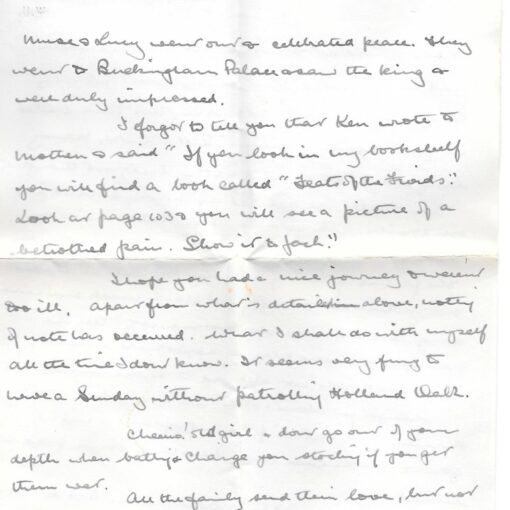 Nurse & Lucy went out & celebrated peace. They
went to Buckingham Palace & saw the King &
were duly impressed.
I forgot to tell you that Ken wrote to
Mother & said "If you look in my bookshelf
you will find a book called "Feats of the Fjords".
Look at page 103 & you will see a picture of a
betrothed pair. Show it to Jack"!
I hope you had a nice journey & weren't
too ill. Apart from what is detailed above, nothing
of note has occurred. What I shall do with myself
all the time I don't know. It seems very funny to
have a Sunday without patrolling Holland Walk.
Cheerio! old girl & don't go out of your
depth when bathing & change your stockings if you get
them wet.
All the family send their love, but not